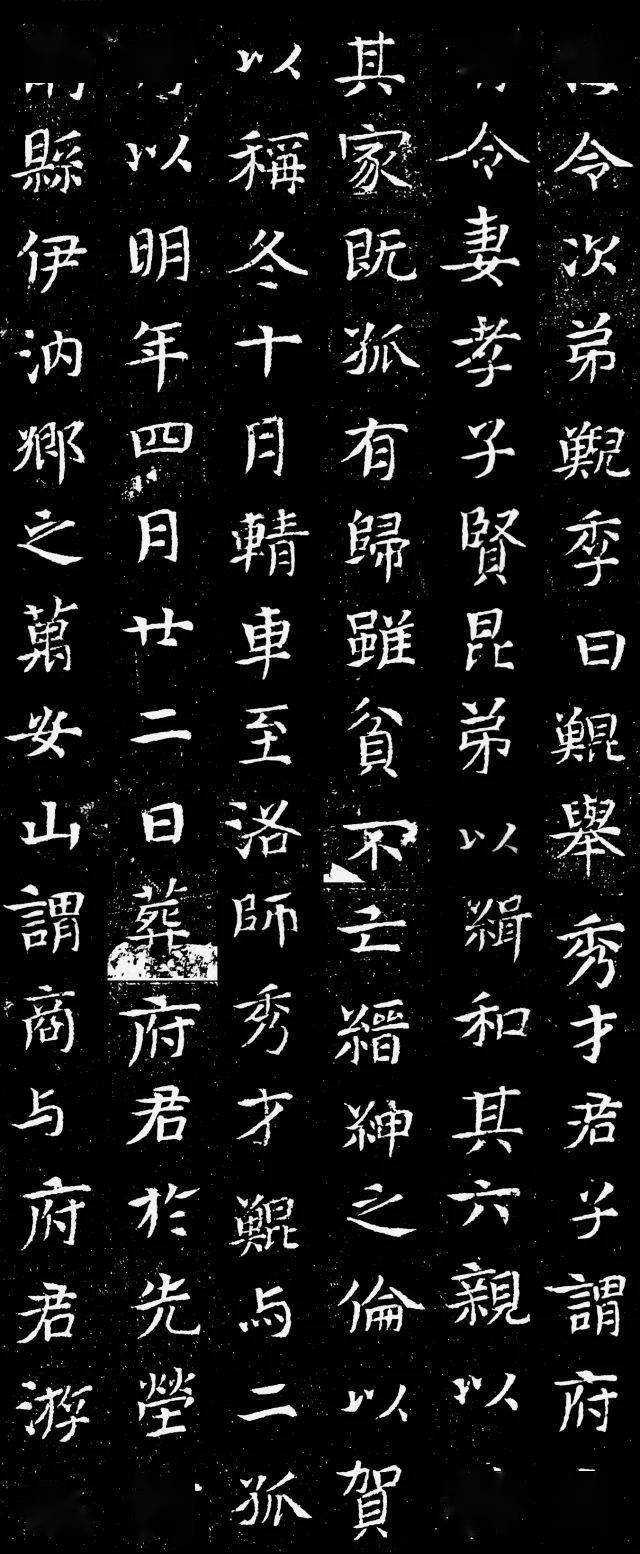 令次弟季曰鯤舉秀才君子謂府
令妻孝子賢昆弟以緝和其六親以
其家既孤有歸雖貧不亡縉紳之倫以賀
以稱冬十月輤車至洛師秀才鯤与二孤
以明年四月廿二日葬府君於先塋
縣伊汭鄉之萬安山謂商与府君游